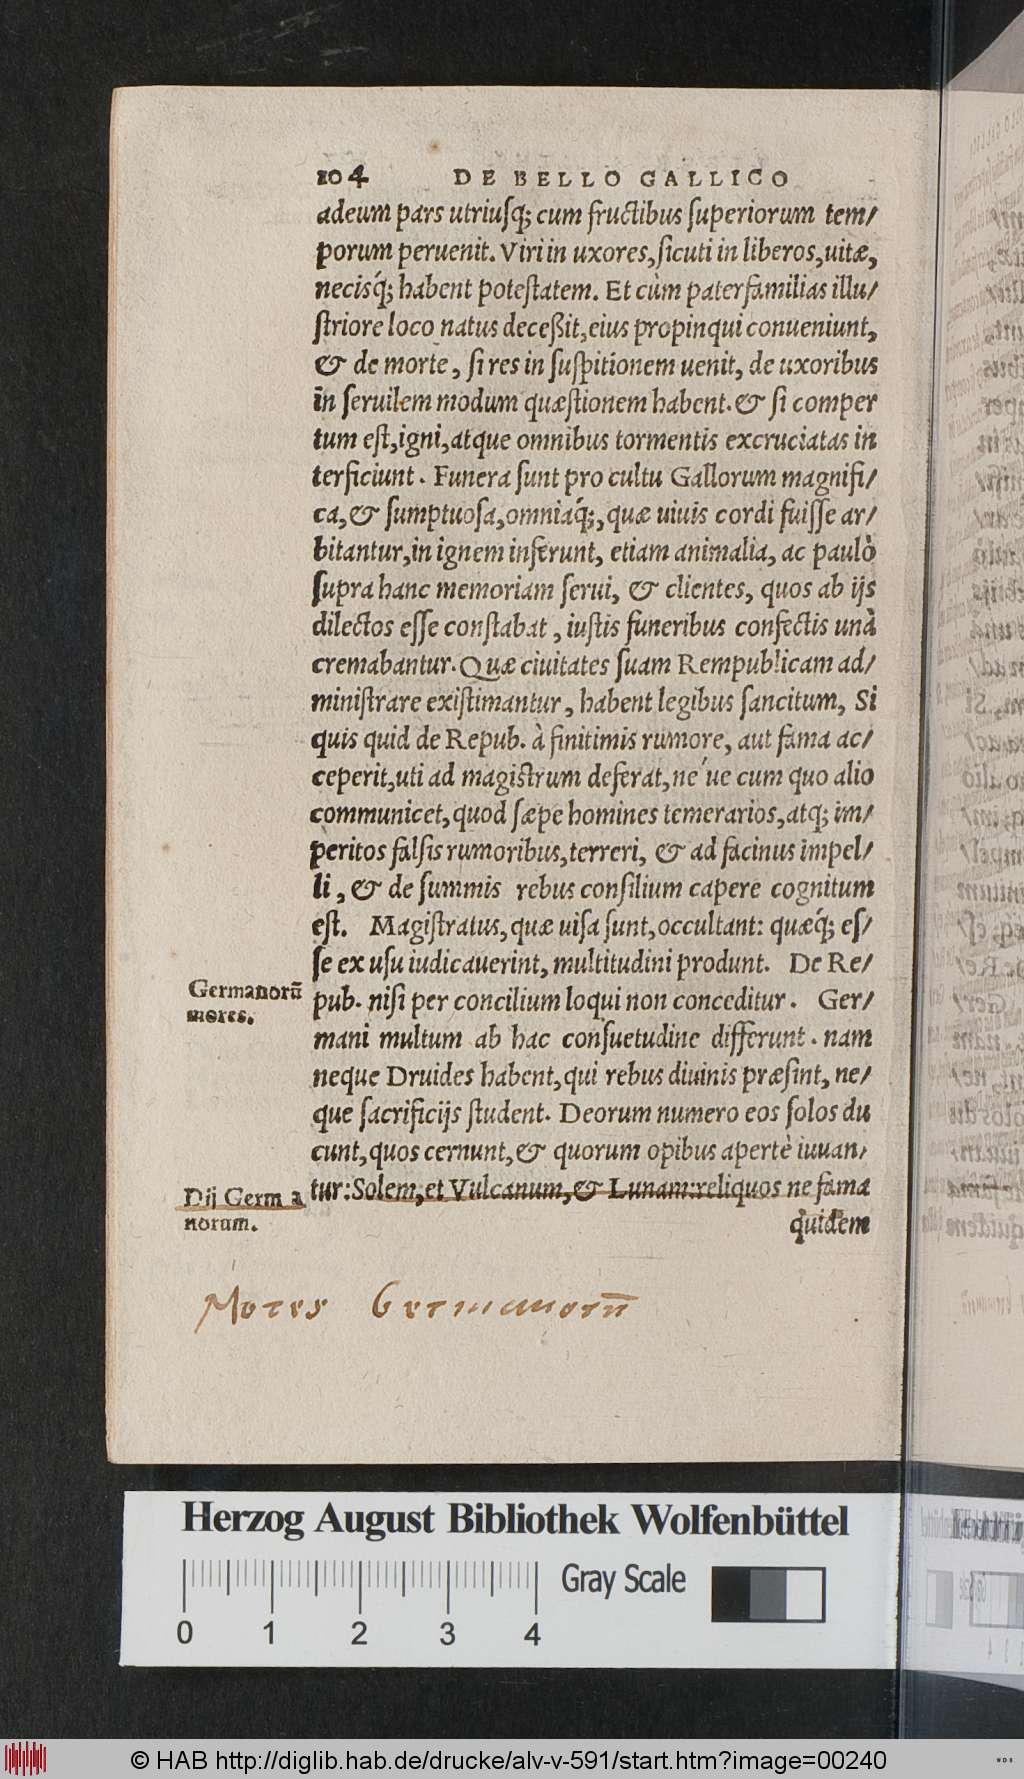 104 DE BELLO GALLICO
adeum pars utriusq; cum fructibus superiorum tem/
porum peruenit. Viri in uxores, sicuti in liberos, uitæ,
necisq́; habent potestatem. Et cùm paterfamilias illu/
striore loco natus deceßit, eius propinqui conueniunt,
& de morte, si res in suspitionem uenit, de uxoribus
in seruilem modum quæstionem habent. & si comper
tum est, igni, atque omnibus tormentis excruciatas in
terficiunt. Funera sunt pro cultu Gallorum magnifi/
ca, & sumptuosa, omniaq́;, quæ uiuis cordi fuisse ar/
bitantur, in ignem inferunt, etiam animalia, ac paulò
supra hanc memoriam serui, & clientes, quos ab ijs
dilectos esse constabat, iustis funeribus confectis unà
cremabantur. Quæ ciuitates suam Rempublicam ad/
ministrare existimantur, habent legibus sancitum, Si
quis quid de Repub. à finitimis rumore, aut fama ac/
ceperit, uti ad magistrum deferat, ne´ue cum quo alio
communicet, quod sæpe homines temerarios, atq; im/
peritos falsis rumoribus, terreri, & ad facinus impel/
li, & de summis rebus consilium capere cognitum
est. Magistratus, quæ uisa sunt, occultant: quæq́; es/
se ex usu iudicauerint, multitudini produnt. De Re/
Germanorū
mores.
pub. nisi per concilium loqui non conceditur. Ger/
mani multum ab hac consuetudine differunt. nam
neque Druides habent, qui rebus diuinis præsint, ne/
que sacrificijs student. Deorum numero eos solos du
cunt, quos cernunt, & quorum opibus apertè iuuan/
Dij Germ a
norum.
tur: Solem, et Vulcanum, & Lunam: reliquos ne fama
quidem
Mores Germanorū
Herzog August Bibliothek Wolfenbüttel
Gray Scale
0 1 2 3 4
© HAB http://diglib.hab.de/drucke/alv-v-591/start.htm?image=00240